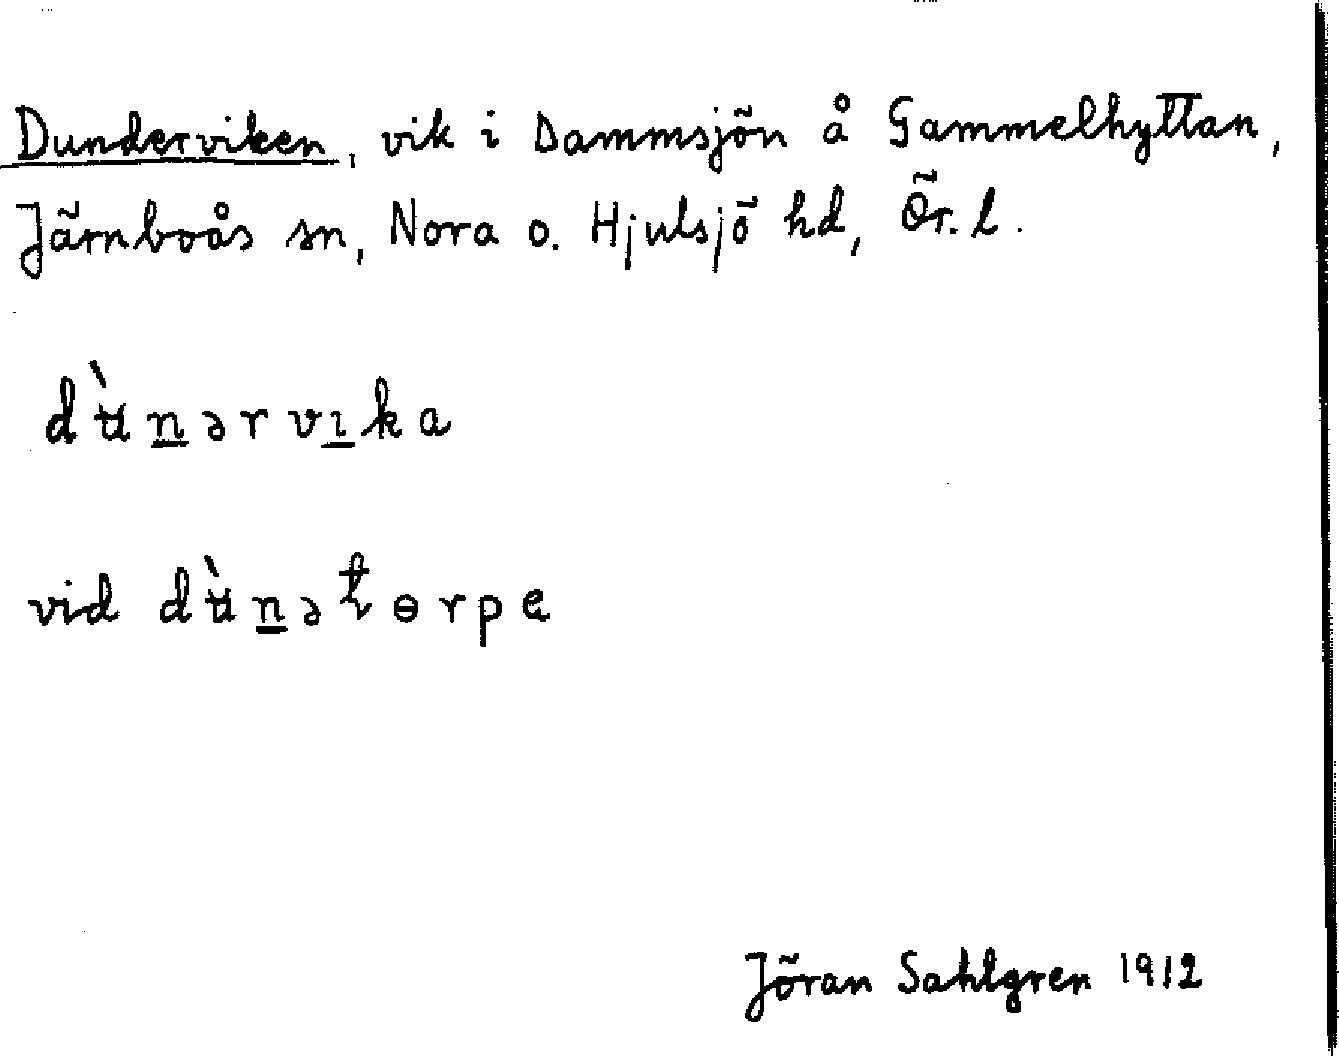 Dunderviken, vik i Dammsjön å Gammelhyttan,
Järnboås sn, Nora o. Hjulsjö hd, Ör. l.
dʉ̀n̲ərvı̲ka
vid dʉ̀n̲ətɵrpe
Jöran Sahlgren 1912